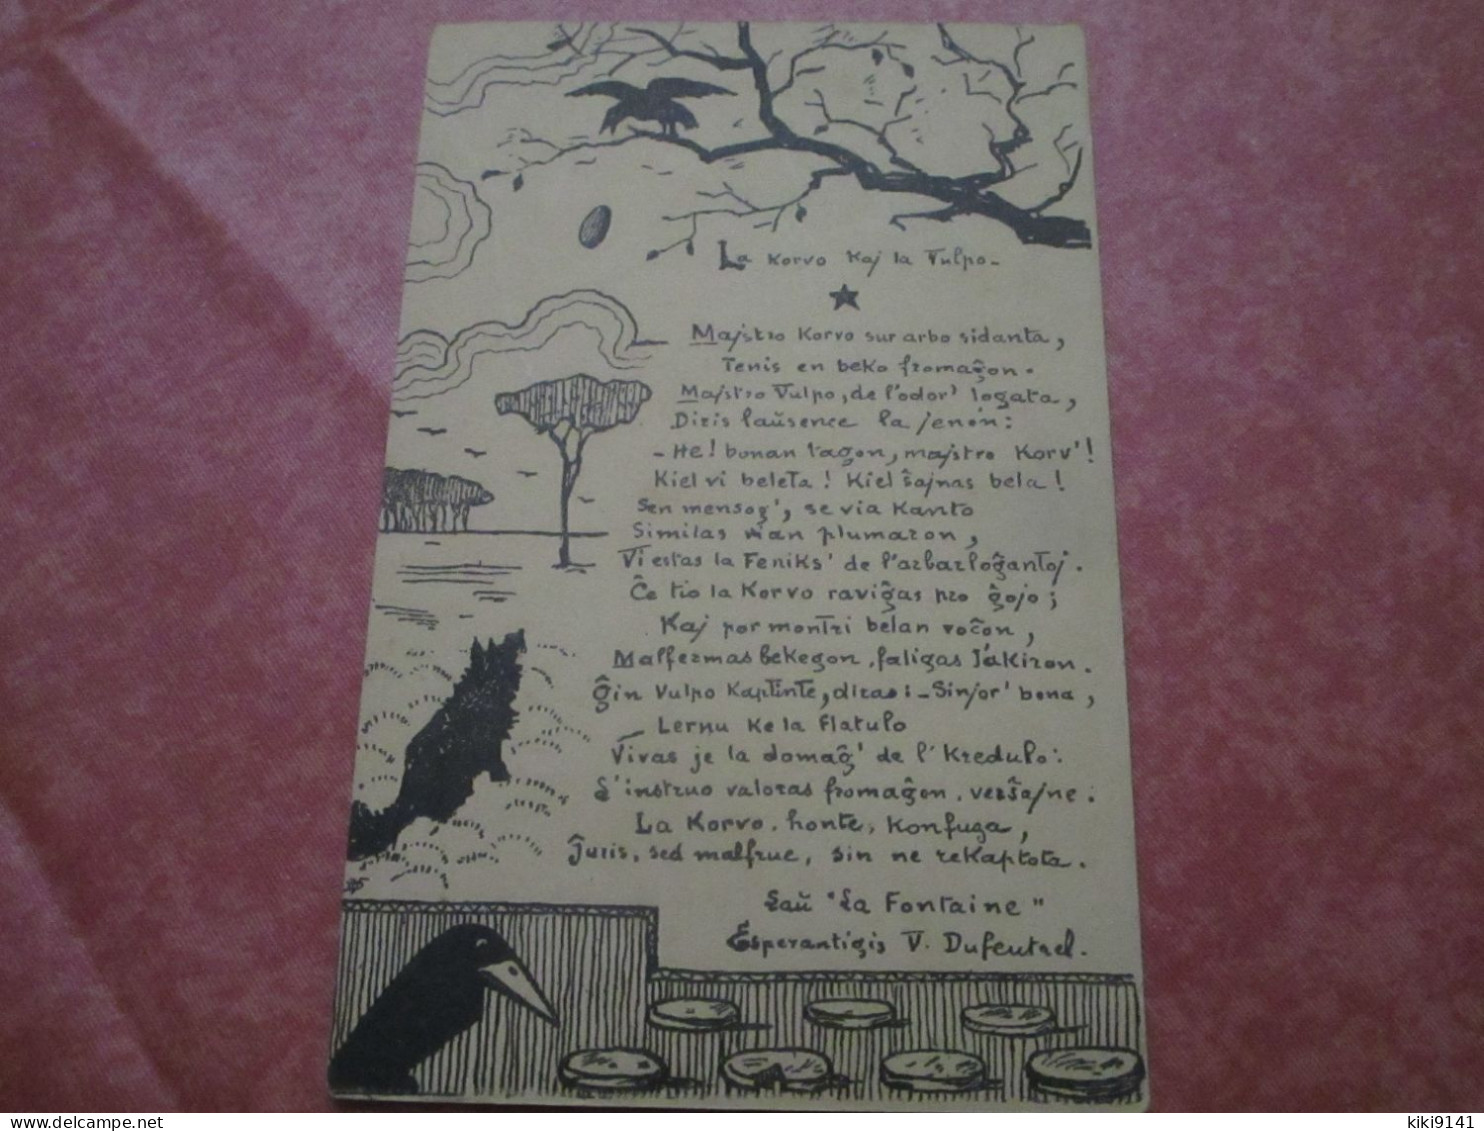 La Korvo Kaj la Vulpo-
Majstro Korvo sur arbo sidanta,
Tenis en beko fromaĝon.
Majstro Vulpo, de l'odor' logata,
Diris laŭsence la jenon:
- He! bonan tagon, majstro Korv'!
Kiel vi beleta! Kiel ŝajnas bela!
Sen mensog', se via Kanto
Similas vian plumaron,
Vi estas la Feniks' de l'arbarloĝantoj.
Ĉe tio la Korvo raviĝas pro ĝojo;
Kaj por montri belan voĉon,
Malfermas bekegon, faligas l'akiron.
Ĝin Vulpo Kaptinte, diras: - Sinjor' bona,
Lernu ke la flatulo
Vivas je la domaĝ' de l' Kredulo:
L'instruo valoras fromaĝon, verŝajne:
La Korvo, honte, Konfuza,
Ĵuris, sed malfrue, sin ne reKaptota.
Laŭ "La Fontaine"
Esperantigis V. Dufeutrel.
delcampe.net
kiki9141